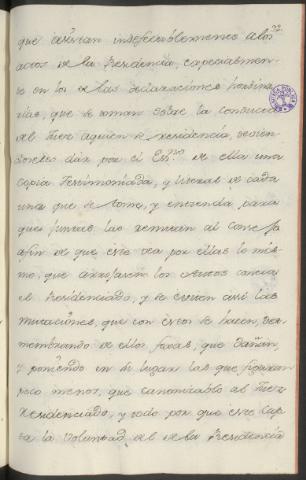 que asistan indefectiblemente a los
actos de la Residencia, especialmen-
te en los de las declaraciones
que se toman sobre la conducta
del Juez a quien se residencia,
dar por el Ess.no de ella una
copia Testimoniada, y literal de cada
una que se tome, y entienda para
que juntas las remitan al Conse jo
afin de que este vea por ellas lo mis-
mo, que arrojaren los contra
el Residenciado, y se eviten assi las
mutaciones, que con estos se hacen, des-
membrando de ellos fojas, que dañan,
y poniendo en su lugar las que figuran
poco menos, que canonizable al Juez
Residenciado, y todo por que este cap-
ta la voluntad del de la Residencia